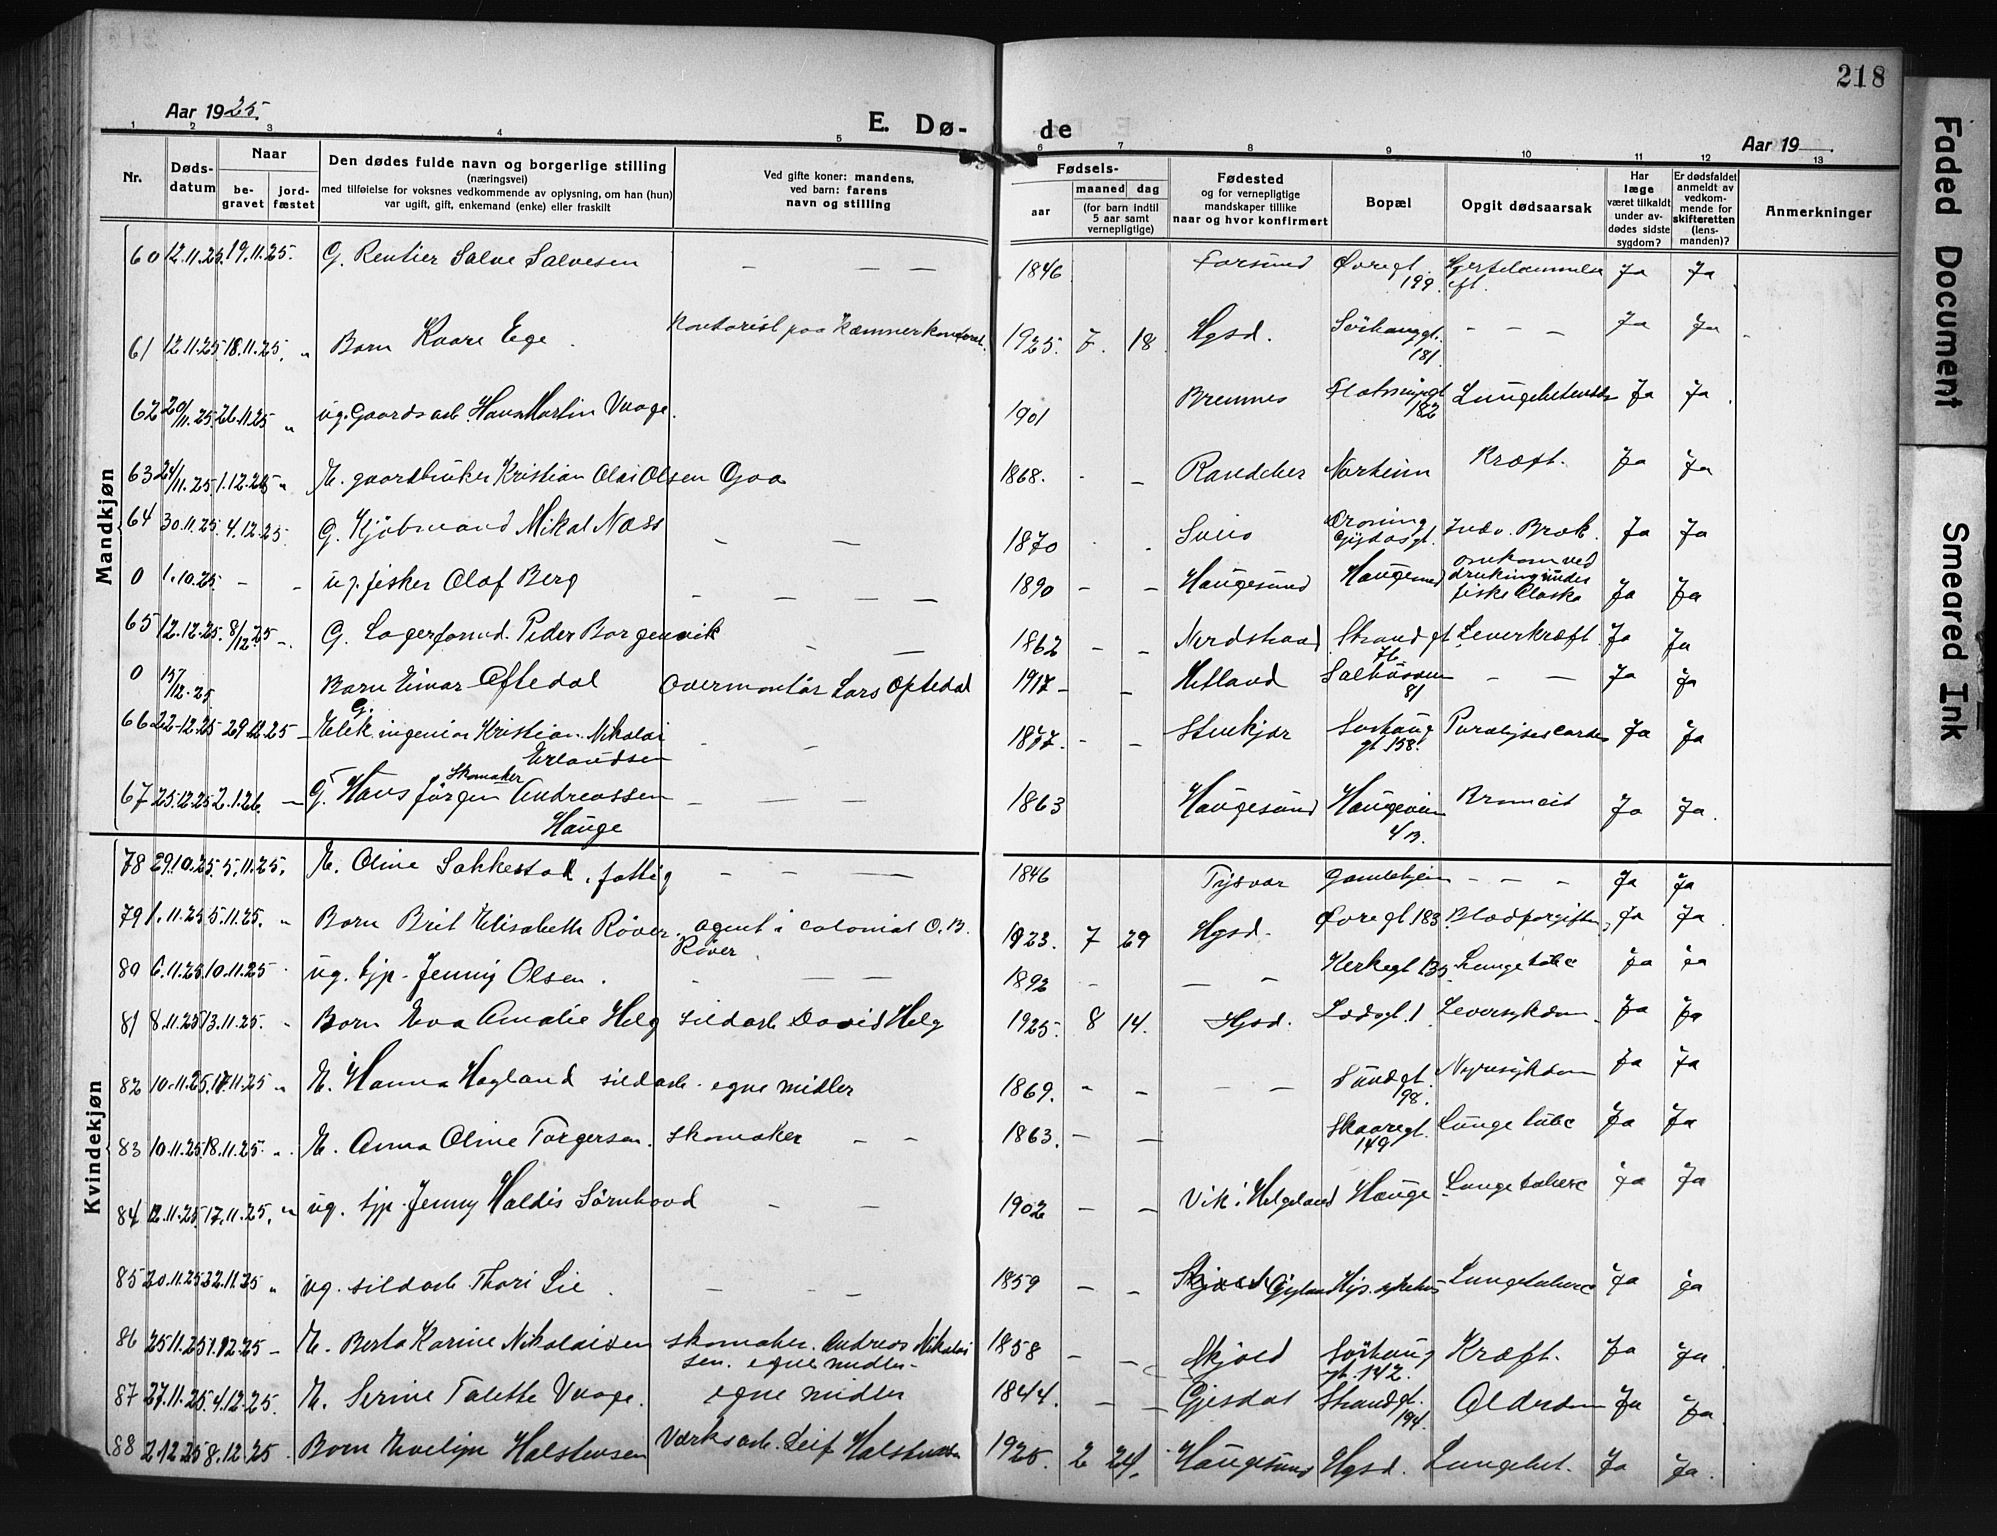 218
Aar 1925.
E. Dø-
de
Aar 19
1 2 3 4 5 6 7 8 9 10 11 12 13
Nr.
Døds-
datum
Naar
be-
gravet
jord-
fæstet
Den dødes fulde navn og borgerlige stilling
(næringsvei)
med tilføielse for voksnes vedkommende av oplysning, om han (hun)
var ugift, gift, enkemand (enke) eller fraskilt
Ved gifte koner: mandens,
ved barn: farens
navn og stilling
Fødsels-
aar
maaned
dag
(for barn indtil
5 aar samt
vernepligtige)
Fødested
og for vernepligtige
mandskaper tillike
naar og hvor konfirmert
Bopæl
Opgit dødsaarsak
Har
læge
været tilkaldt
under av-
dødes sidste
sygdom?
Er dødsfaldet
anmeldt av
vedkom-
mende for
skifteretten
(lens-
manden)?
Anmerkninger
Mandkjøn
60 12.11.25. 19.11.25. G. Rentier Salve Salvesen — — — 1846 Farsund Øvregt. 199. Ja Ja
61 12.11.25 18.11.25. „ Barn Kaare Ege. Kontorist paa Kæmnerkontoret. 1925. 7. 18. Hgsd. Sörhauggt. 181 — — — Ja Ja
62 20/11.25. 26.11.25 „ ug. Gaardsarb. Hans Martin Vaage. 1901 Bremnes 182 Ja Ja
63 24/11.25 1.12.25 „ E. gaardbruker Kristian Olai Olsen Goa 1868. - — Norheim Kræft. Ja Ja
64 30.11.25. 4.12.25. G. Kjøbmand Mikal Næss — — 1870 - - Sveio Dronning Gydasgt. Indv. Bræk. Ja Ja
0 1.10.25. - - - ug. fisker Olaf Berg — — — — 1890 — — Haugesund Haugesund omkom ved drukning under fiske Alaska Ja Ja
65 12.12.25. 8/12.25 -. G. Lagerformd. Peder Borgenvik — — 1862 — — Nerdstrand Strandgt. 76 Leverkræft. Ja Ja
0 15/12.25 Barn Einar Oftedal Overmontør Lars Oftedal 1917 — — Hetland Salhusveien 81 — — Ja Ja
66 22.12.25 29.12.25 — G. Elek. ingeniør Kristian Nikolai Erlandsen - - 1877. — — Stenkjær Sorhaug gt 158. Ja Ja
67 25.12.25 2.1.26. — G. Skomaker Hans Jørgen Andreassen Hauge — — — 1863 Haugesund Haugeveien 4 B. Ja Ja.
Kvindekjøn
78 29.10.25 5.11.25. E. Oline Sakkestad, fattig — — — 1846 Tysvær Gamlehjem — — — Ja Ja
79 1.11.25 5.11.25. „ Barn Brit Elisabeth Röver. agent i colonial O. B. Röver. 1923. 7 29 Hgsd. Øvregt 183 Blodforgiftn. Ja Ja.
80 6.11.25 10.11.25 - ug. tjp. Jenny Olsen. - — — 1892 - — — — Kirkegt 135. Lungetubc Ja Ja
81 8.11.25 13.11.25. „ Barn Eva Amalie Helg sildarb David Helg 1925. 8 14. Hgsd. Lodsgt. 1 Leversykdom Ja Ja
82 10.11.25. 17.11.25 „ E. Hanna Hagland sildarb. egne midler 1869. - - — — Sundgt. 98. Nyresykdom Ja Ja
83 10.11.25. 18.11.25. „ E. Anna Oline Torgersen. Skomaker — — 1863. — — Skaaregt. 149 Lungetubc Ja Ja
84 12.11.25 17.11.25. „ ug. tjp. Jenny Haldis Sørnhovd — — 1902 — — Vik i Helgeland Hauge Lungetuberc Ja Ja
85 20.11.25 „ ug. sildarb Thori Lie. — — — 1859 — — Gjyland Hgs. sykehus Lungetuberc Ja Ja
86 25.11.25 1.12.25 — E. Berta Karine Nikolaisen Skomaker. Andreas Nikolaisen. egne midler. 1858 — — Skjold Sörhaug gt. 142. Kræft. Ja Ja
87 27.11.25. 4.12.25. E. Serine Talette Vaage. egne midler 1844. — — Gjesdal Strandgt. 194. Alderdom Ja Ja.
88 2.12.25 8.12.25. Barn Evelyn Halstensen Værksarb. Leif Halstensen 1925. 2 24. Haugesund Hgsd. Lungebet. Ja Ja.
Faded Document
Smeared Ink